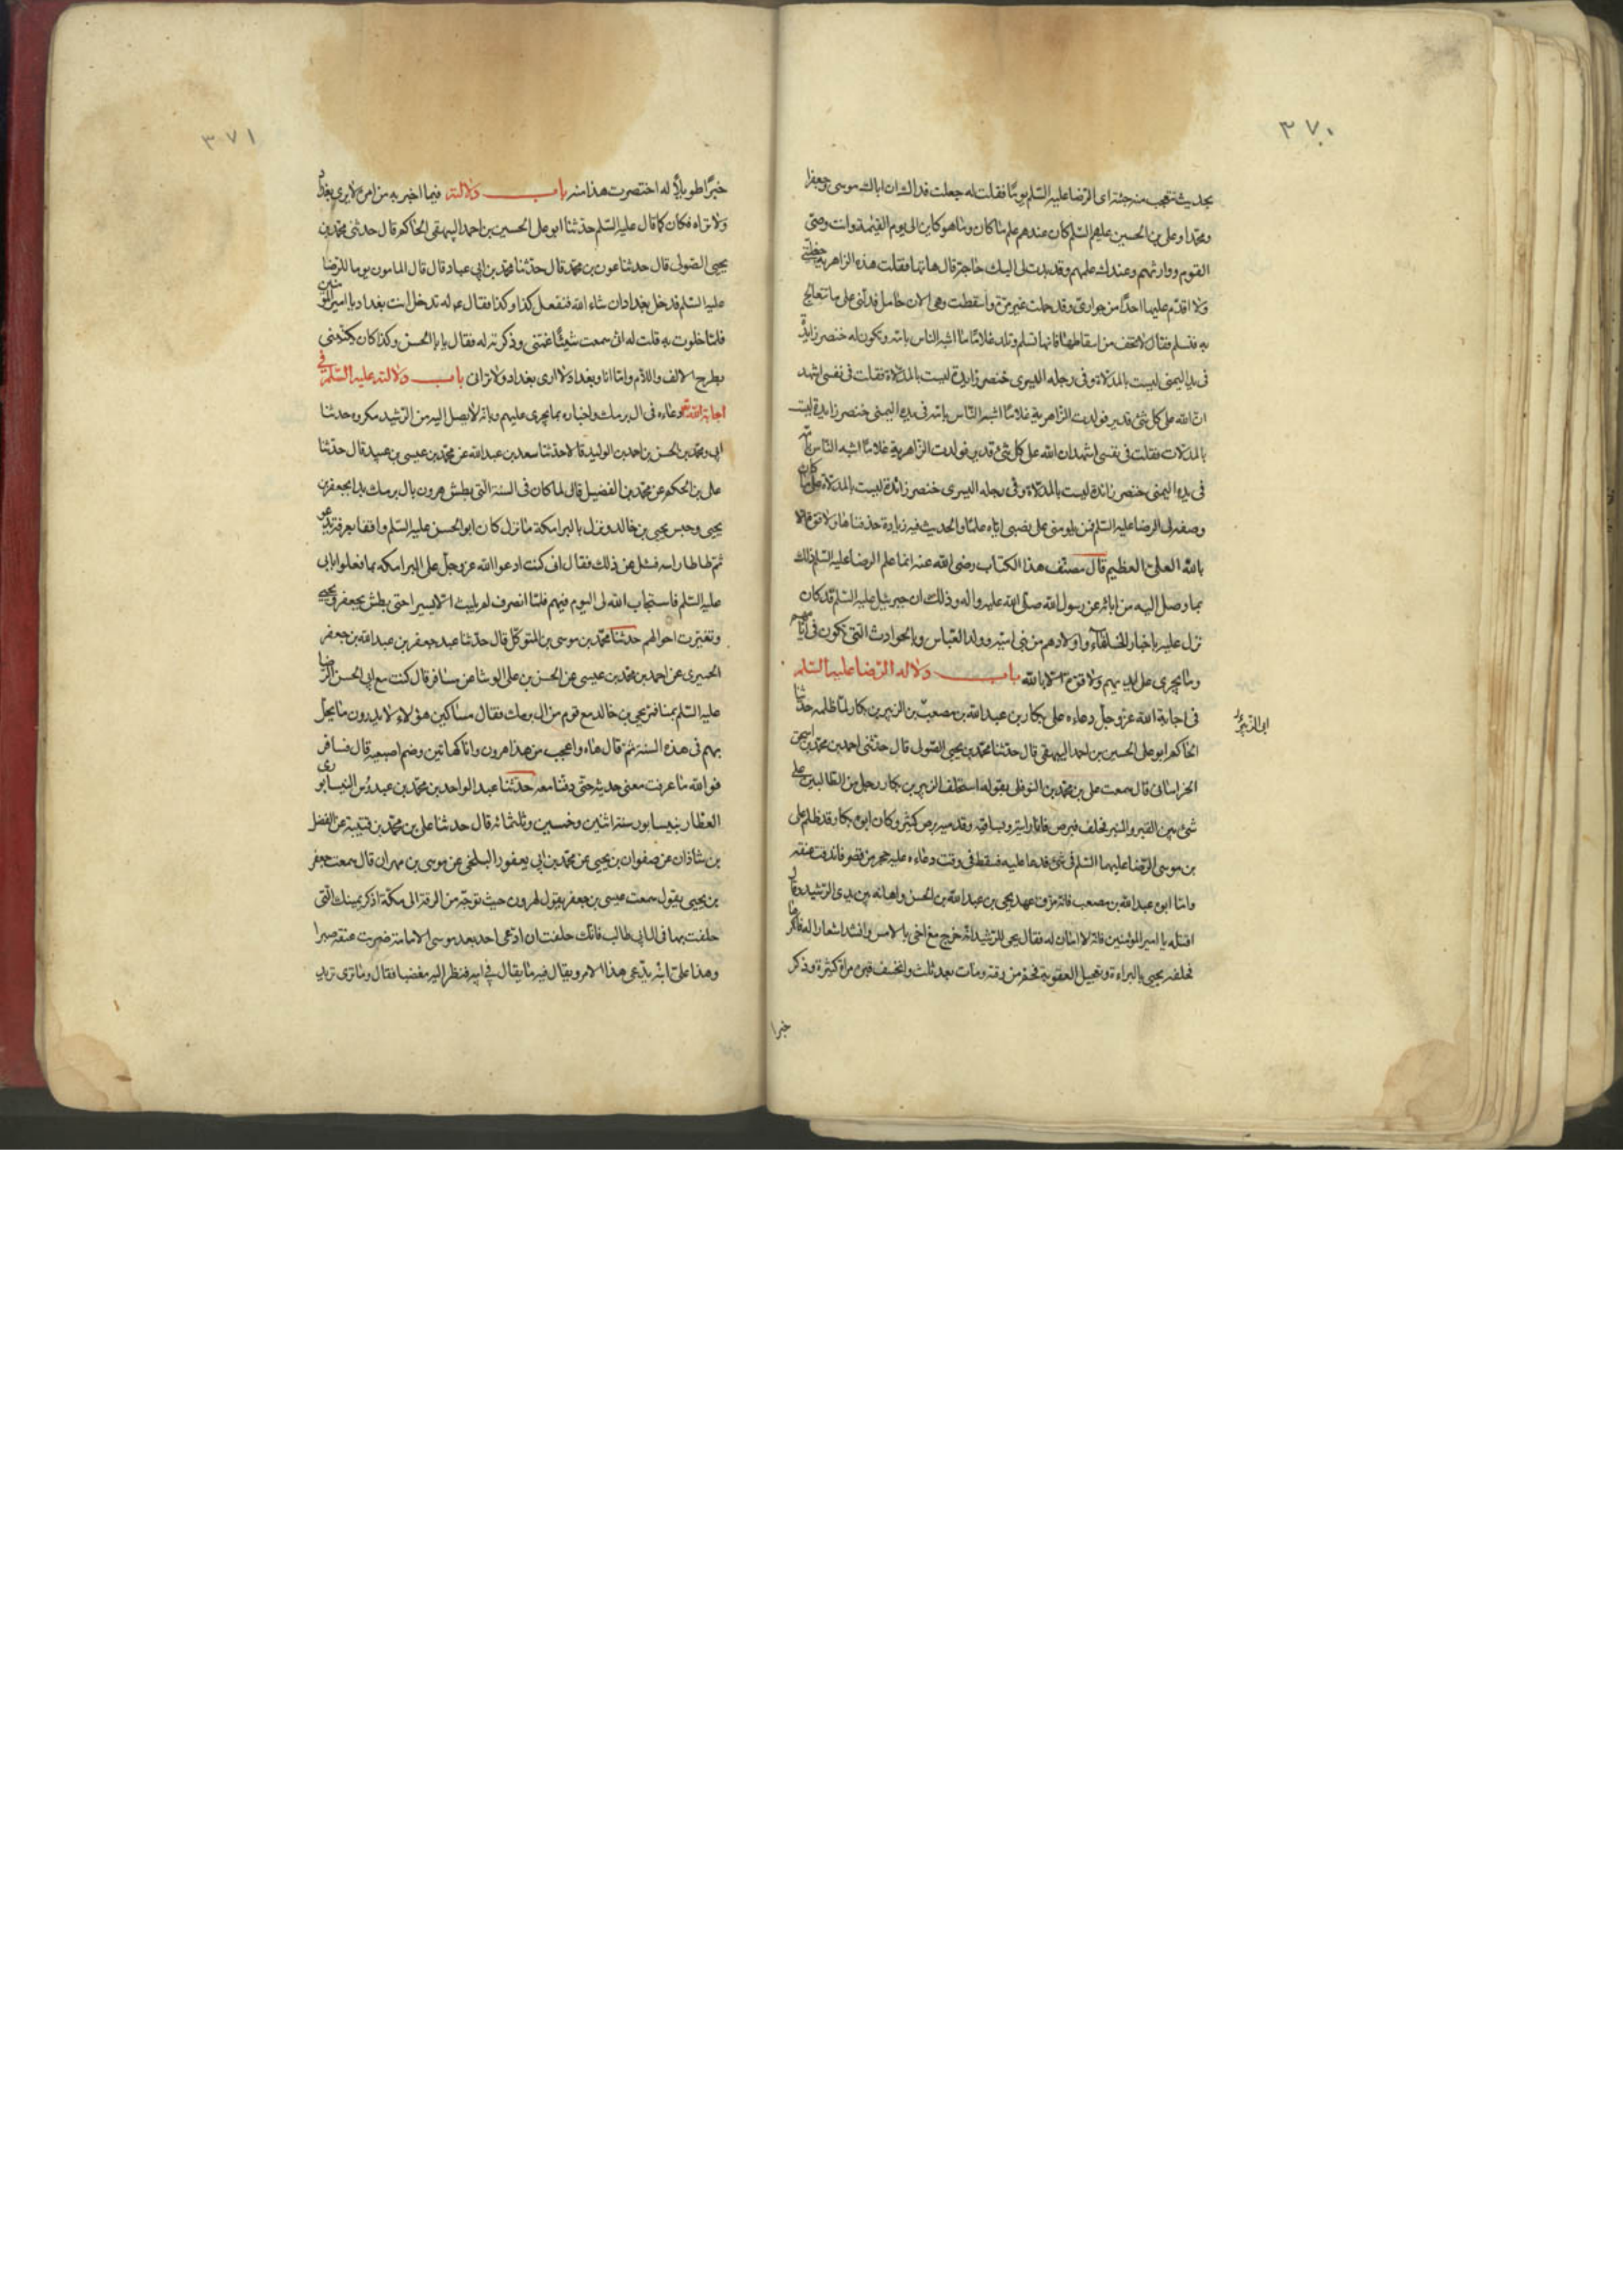 ٣٧٠
بحديث تتعجب منه جئته اى الرضا عليه السّلم يومًا فقلت له جعلت فداك ان اباك موسى وجعفرا
ومحمّدا وعلى بن الحسين عليهم السّلم كان عندهم علم ما كان وما هو كاين الى يوم القيمة وانت وصىّ
القوم ووارثهم وعندك علمهم وقد بدت لى اليك حاجة قال هاتها فقلت هذه الزاهرية حظيتى
ولا اقدّم عليها احدًا من جوارىّ وقد حملت غير مرّة واسقطت وهى الان حامل فدلّنى على ما تتعالج
به فتسلم فقال لا تخف من اسقاطها فانها تسلم وتلد غلامًا اشبه الناس بامّه وتكون له خنصر زايدة
فى يده اليمنى ليست بالمدلاة وفى رجله اليسرى خنصر زايدة ليست بالمدلاة فقلت فى نفسى اشهد
انّ الله على كل شئ قدير فولدت الزاهرية غلامًا اشبه النّاس بامّه فى يده اليمنى خنصر زايدة ليست
بالمدلات فقلت فى نفسى اشهد ان الله على كل شئ قدير فولدت الزاهرية غلامًا اشبه النّاس بامّه
فى يده اليمنى خنصر زائدة ليست بالمدلاة وفى رجله اليسرى خنصر زائدة ليست بالمدلاة على ما كان
وصفه لى الرضا عليه السّلم فمن يلومنى على نصبى ايّاه علمًا والحديث فيه زيادة حذفناها ولا قوة الا
بالله العلىّ العظيم قال مصنّف هذا الكتاب رضى الله عنه انما علم الرضا عليه السّلم ذلك
بما وصل اليه من ابائه عن رسول الله صلّى الله عليه واله وذلك ان جبرئيل عليه السّلم قد كان
نزل عليه باخبار الخلفاء واولادهم من بنى اميّه وولد العبّاس وبالحوادث التى تكون فى ايّامهم
وما يجرى على ايديهم ولا قوة الا بالله باب دلاله الرّضا عليه السّلم
فى اجابة الله عزّوجلّ دعاءه على بكار بن عبدالله بن مصعب بن الزبير بن بكار لمّا ظلمه حدثنا
ابى الزبير
الحاكم ابو على الحسين بن احمد البيهقى قال حدّثنا محمّد بن يحيى الصّولى قال حدّثنى احمد بن محمّد بن اسحق
الخراسانى قال سمعت على بن محمّد بن النوفلى يقول استحلف الزبير بن بكار رجل من الطالبين على
شئ بين القبر والمنبر فحلف فبرص فانا رايته وبساقيه وقدميه برص كثير وكان ابوه بكار قد ظلم على
بن موسى الرّضا عليهما السّلم فى شئ فدعا عليه فسقط فى وقت دعاءه عليه حجر من قصر فاندقت عنقه
وامّا ابوه عبدالله بن مصعب فانه مزّق عهد يحيى بن عبدالله بن الحسن واهانه بين يدى الرّشيد وقال
اقتله يا امير المؤمنين فانه لا امان له فقال يحيى للرّشيد انّه خرج مع اخى بالامس وانشد اشعارا له فانكرها
فحلفه يحيى بالبراءة وتعجيل العقوبة فحمّ من وقته ومات بعد ثلث وانخسف قبره مرات كثيرة وذكر
خبرا
٣٧١
خبرًا طويلًا له اختصرت هذا منه باب دلالته فيما اخبر به من امره لا يرى بغداد
ولا تراه فكان كما قال عليه السّلم حدّثنا ابو على الحسين بن احمد البيهقى الحاكم قال حدثنى محمّد بن
يحيى الصّولى قال حدثنا عون بن محمّد قال حدّثنا محمّد بن ابى عباد قال قال المامون يوما للرّضا
عليه السّلم ندخل بغداد ان شاء الله فنفعل كذا وكذا فقال عم له تدخل انت بغداد يا امير المؤمنين
فلمّا خلوت به قلت له انّى سمعت شيئًا غمّنى وذكرته له فقال يا با الحسن وكذا كان يكنينى
بطرح الالف واللام وما انا وبغداد لا ارى بغداد ولا ترانى باب دلالته عليه السّلم فى
اجابة الله دعاءه فى ال برمك واخباره بما يجرى عليهم وبانّه لا يصل اليه من الرّشيد مكروه حدثنا
ابى ومحمّد بن الحسن بن احمد بن الوليد قالا حدّثنا سعد بن عبدالله عن محمّد بن عيسى بن عبيد قال حدّثنا
على بن الحكم عن محمّد بن الفضيل قال لما كان فى السنة التى بطش هرون بال برمك بدا بجعفر بن
يحيى وحبس يحيى بن خالد ونزل بالبرامكة ما نزل كان ابو الحسن عليه السّلم واقفا بعرفة يدعو
ثمّ طاطا راسه فسئل عن ذلك فقال انى كنت ادعوا الله عزّوجلّ على البرامكه بما فعلوا بابى
عليه السّلم فاستجاب الله لى اليوم فيهم فلمّا انصرف لم يلبث الّا يسيرا حتى بطش بجعفر ويحيى
وتغيّرت احوالهم حدثنا محمّد بن موسى بن المتوكّل قال حدّثنا عبد جعفر بن عبدالله بن جعفر
الحميرى عن احمد بن محمّد بن عيسى عن الحسن بن على الوشّا عن مسافر قال كنت مع ابى الحسن الرّضا
عليه السّلم بمنا فمرّ يحيى بن خالد مع قوم من ال برمك فقال مساكين هؤلاء لا يدرون ما يحلّ
بهم فى هذه السنة ثمّ قال هاه واعجب من هذا هرون وانا كهاتين وضم اصبعيه قال مسافر
فوالله ما عرفت معنى حديثه حتى دفنّاه معه حدّثنا عبدالواحد بن محمّد بن عبدوس النيسابورى
العطّار بنيسابور سنة اثنين وخمسين وثلثمائه قال حدّثنا على بن محمّد بن قتيبة عن الفضل
بن شاذان عن صفوان بن يحيى عن محمّد بن ابى يعفور البلخى عن موسى بن مهران قال سمعت جعفر
بن يحيى يقول سمعت عيسى بن جعفر يقول لهرون حيث توجّه من الرقة الى مكّة اذكر يمينك الّتى
حلفت بها فى ال ابى طالب فانّك حلفت ان ادّعى احد بعد موسى الامامة ضربت عنقه صبرا
وهذا علىّ ابنه يدّعى هذا الامر ويقال فيه ما يقال فى ابيه فنظر اليه مغضبا فقال وما ترى تريد